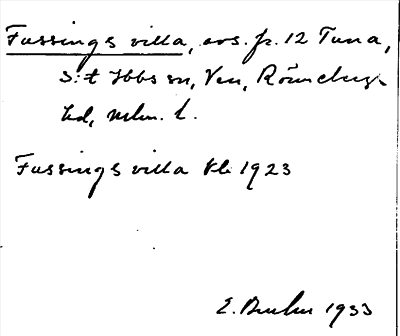 Fussings villa, avs. fr. 12 Tuna,
S:t Ibbs sn, Ven, Rönnebergs
hd, Mlm. l.
Fussings villa Ek 1923
E. 1933